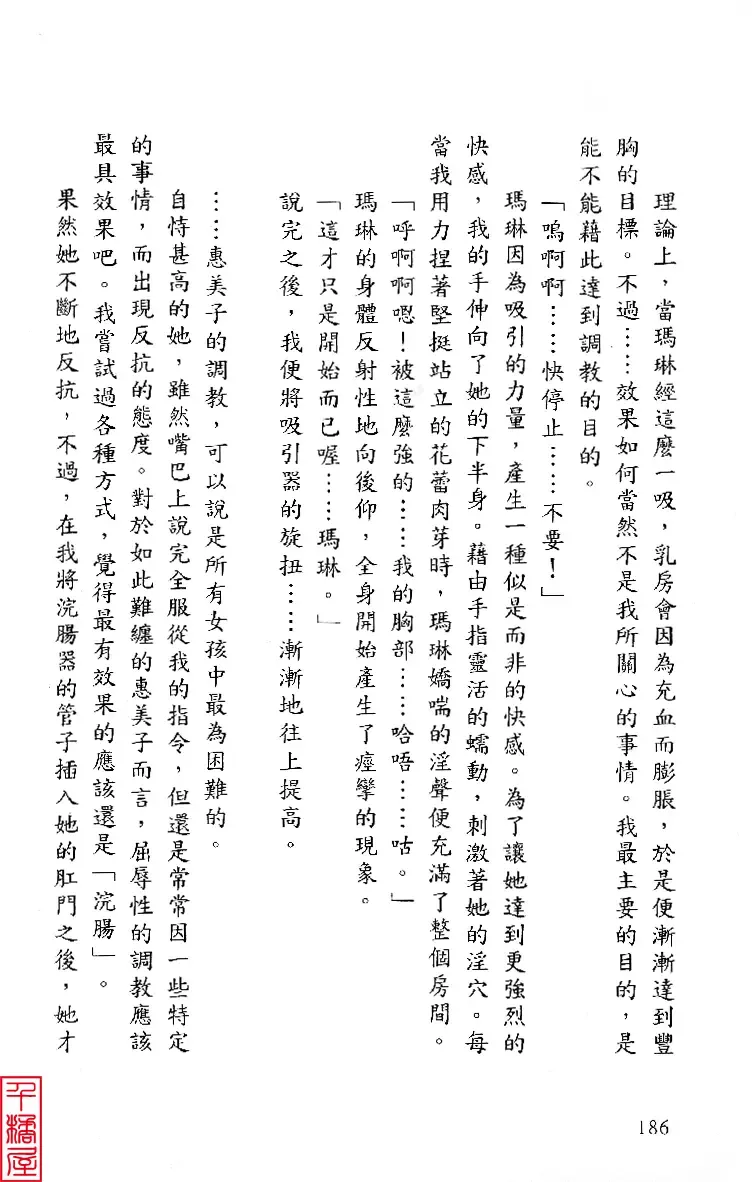 理論上，當瑪琳經這麼一吸，乳房會因為充血而膨脹，於是便漸漸達到豐
胸的目標。不過……效果如何當然不是我所關心的事情。我最主要的目的，是
能不能藉此達到調教的目的。
「嗚啊啊……快停止……不要！」
瑪琳因為吸引的力量，產生一種似是而非的快感。為了讓她達到更強烈的
快感，我的手伸向了她的下半身。藉由手指靈活的蠕動，刺激著她的淫穴。每
當我用力捏著堅挺站立的花蕾肉芽時，瑪琳嬌喘的淫聲便充滿了整個房間。
「呼啊啊嗯！被這麼強的……我的胸部……哈唔……咕。」
瑪琳的身體反射性地向後仰，全身開始產生了痙攣的現象。
「這才只是開始而已喔……瑪琳。」
說完之後，我便將吸引器的旋扭……漸漸地往上提高。
……惠美子的調教，可以說是所有女孩中最為困難的。
自恃甚高的她，雖然嘴巴上說完全服從我的指令，但還是常常因一些特定
的事情，而出現反抗的態度。對於如此難纏的惠美子而言，屈辱性的調教應該
最具效果吧。我嘗試過各種方式，覺得最有效果的應該還是「浣腸」。
果然她不斷地反抗，不過，在我將浣腸器的管子插入她的肛門之後，她才
186
千橘屋